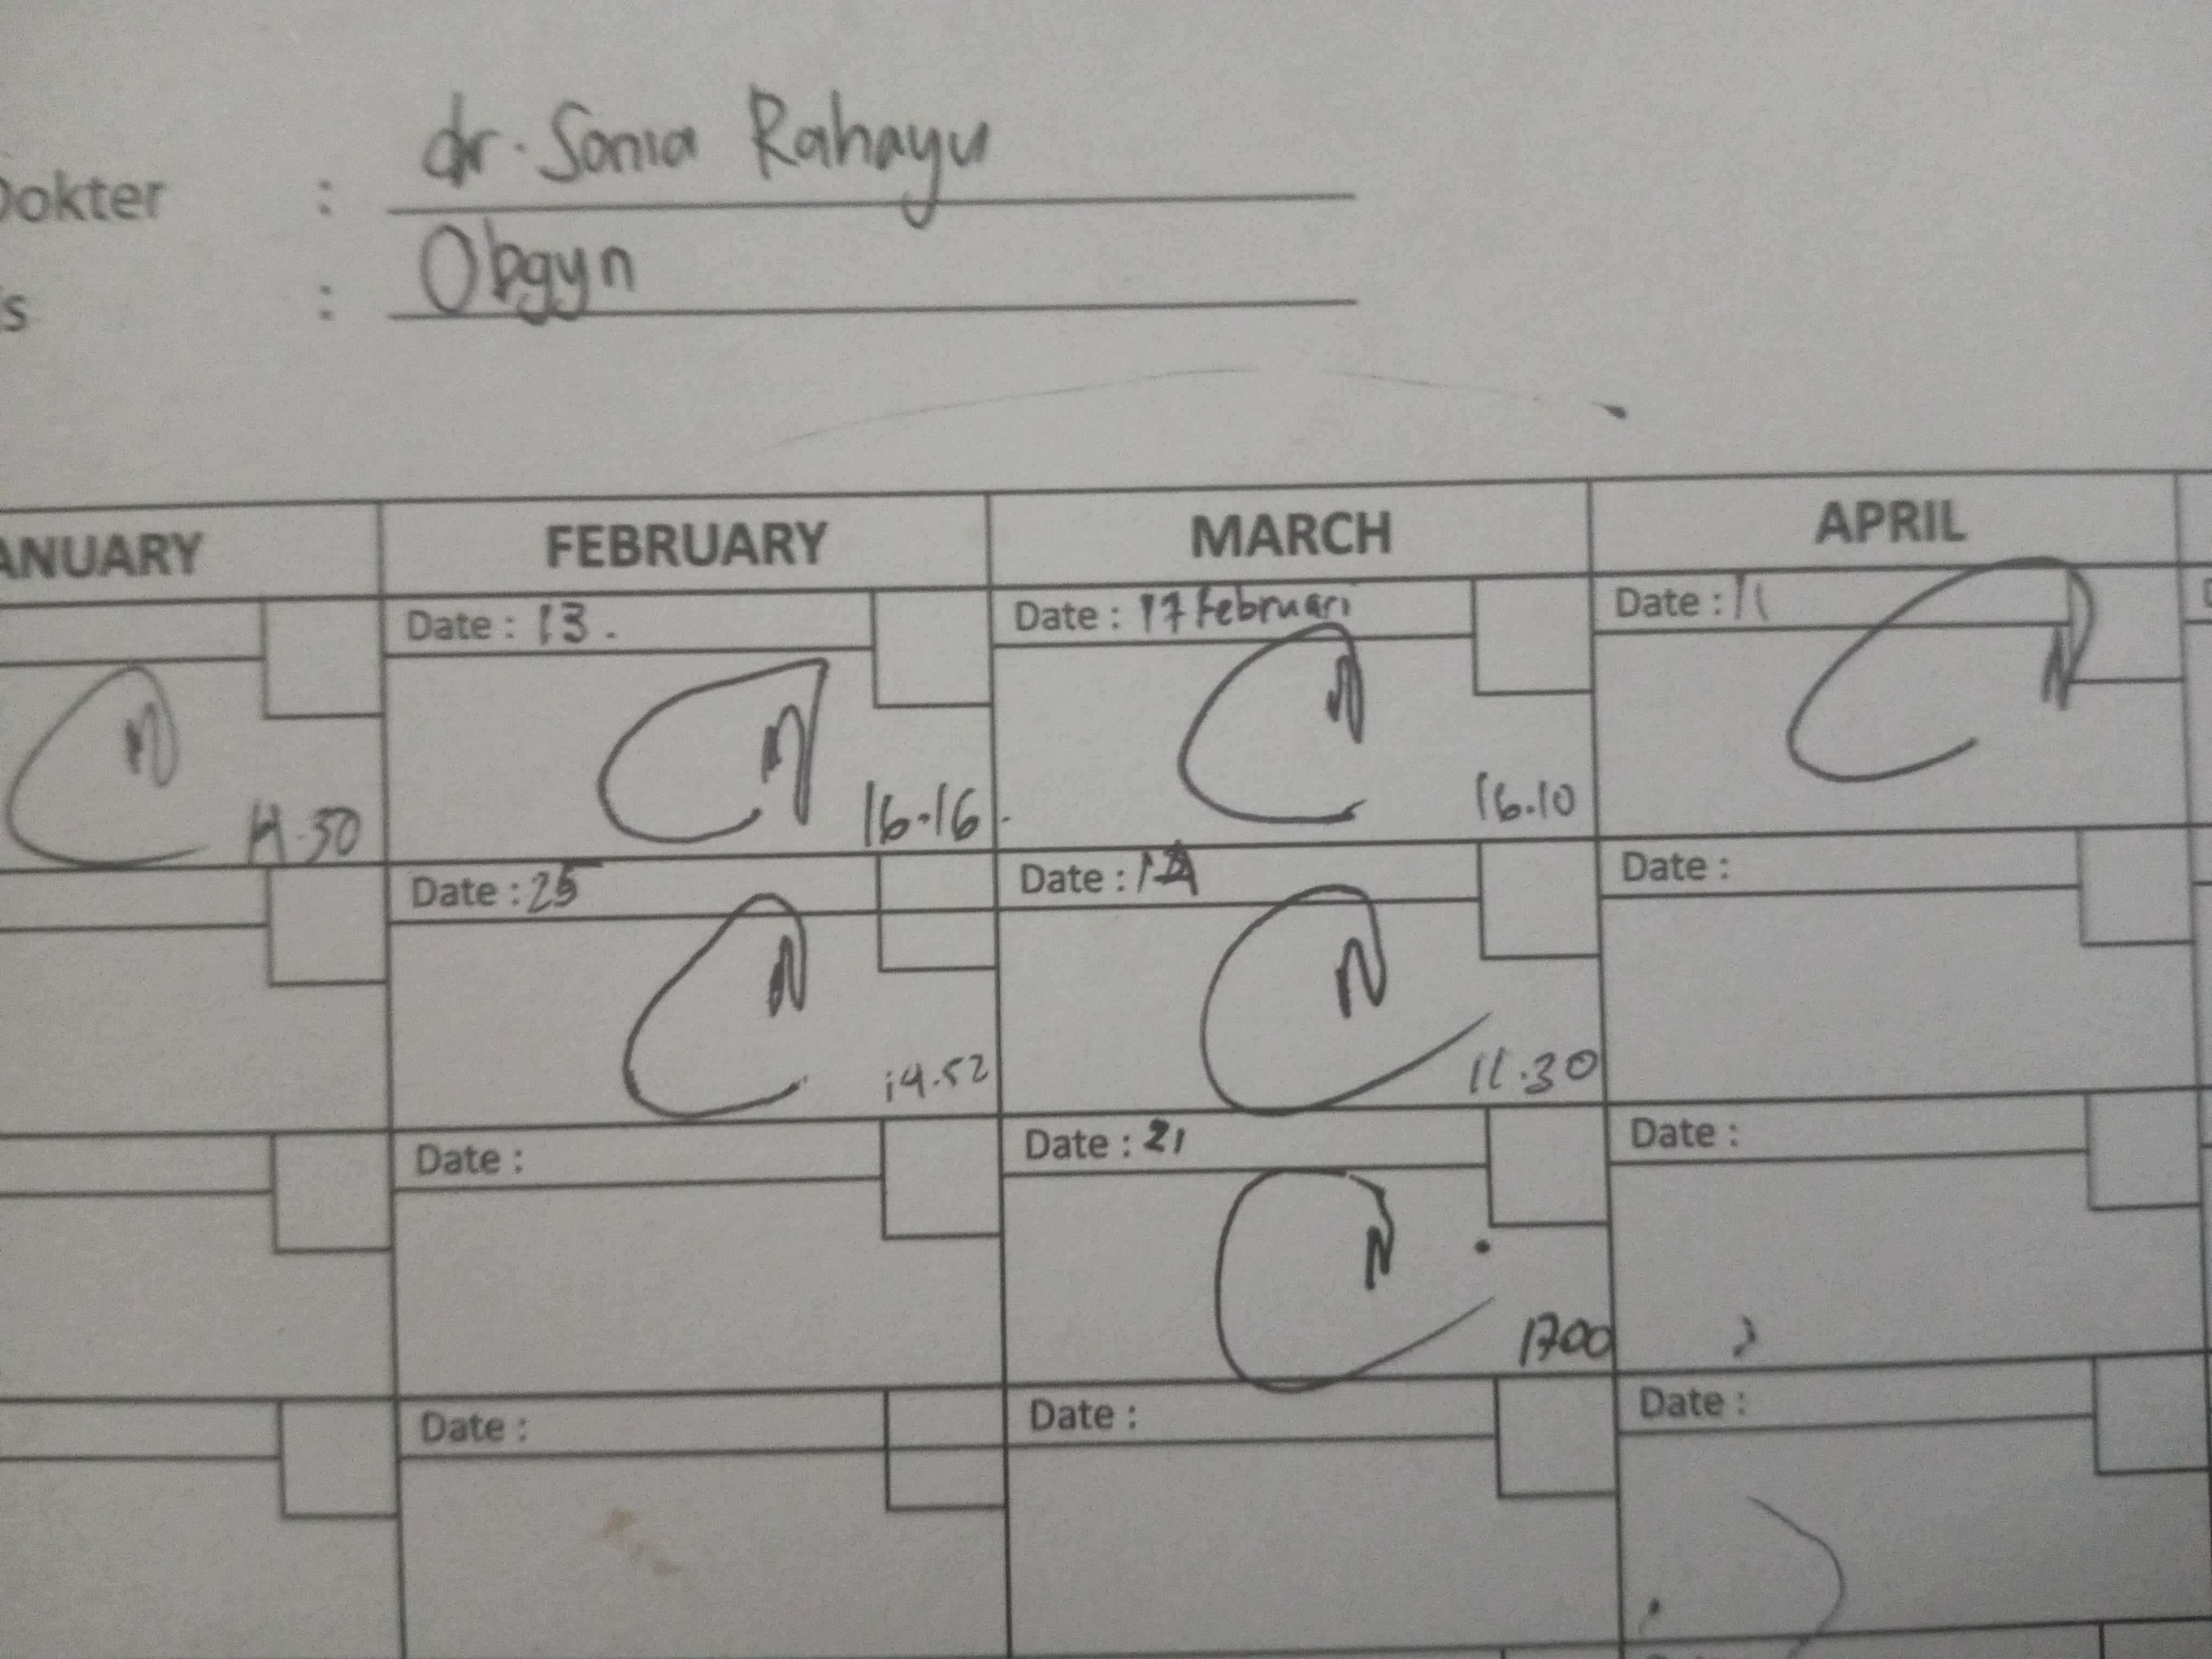 Dokter : dr. Sonia Rahayu
s : Obgyn
ANUARY FEBRUARY MARCH APRIL
Date : 13. Date : 17 Februari Date : 11
16.16 16.10
Date : 25 Date : Date :
14.52 11.30
Date : Date : 21 Date :
1700
Date : Date : Date :